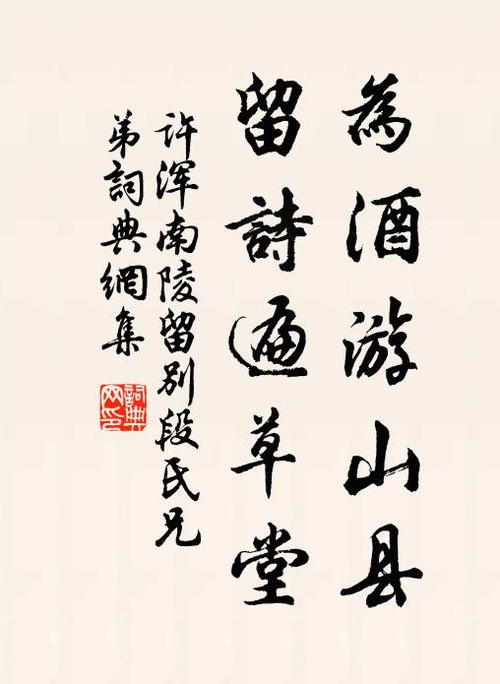 為酒游山县
留詩遍草堂
许浑南陵留别段氏兄
弟詞典網集
詞典網印